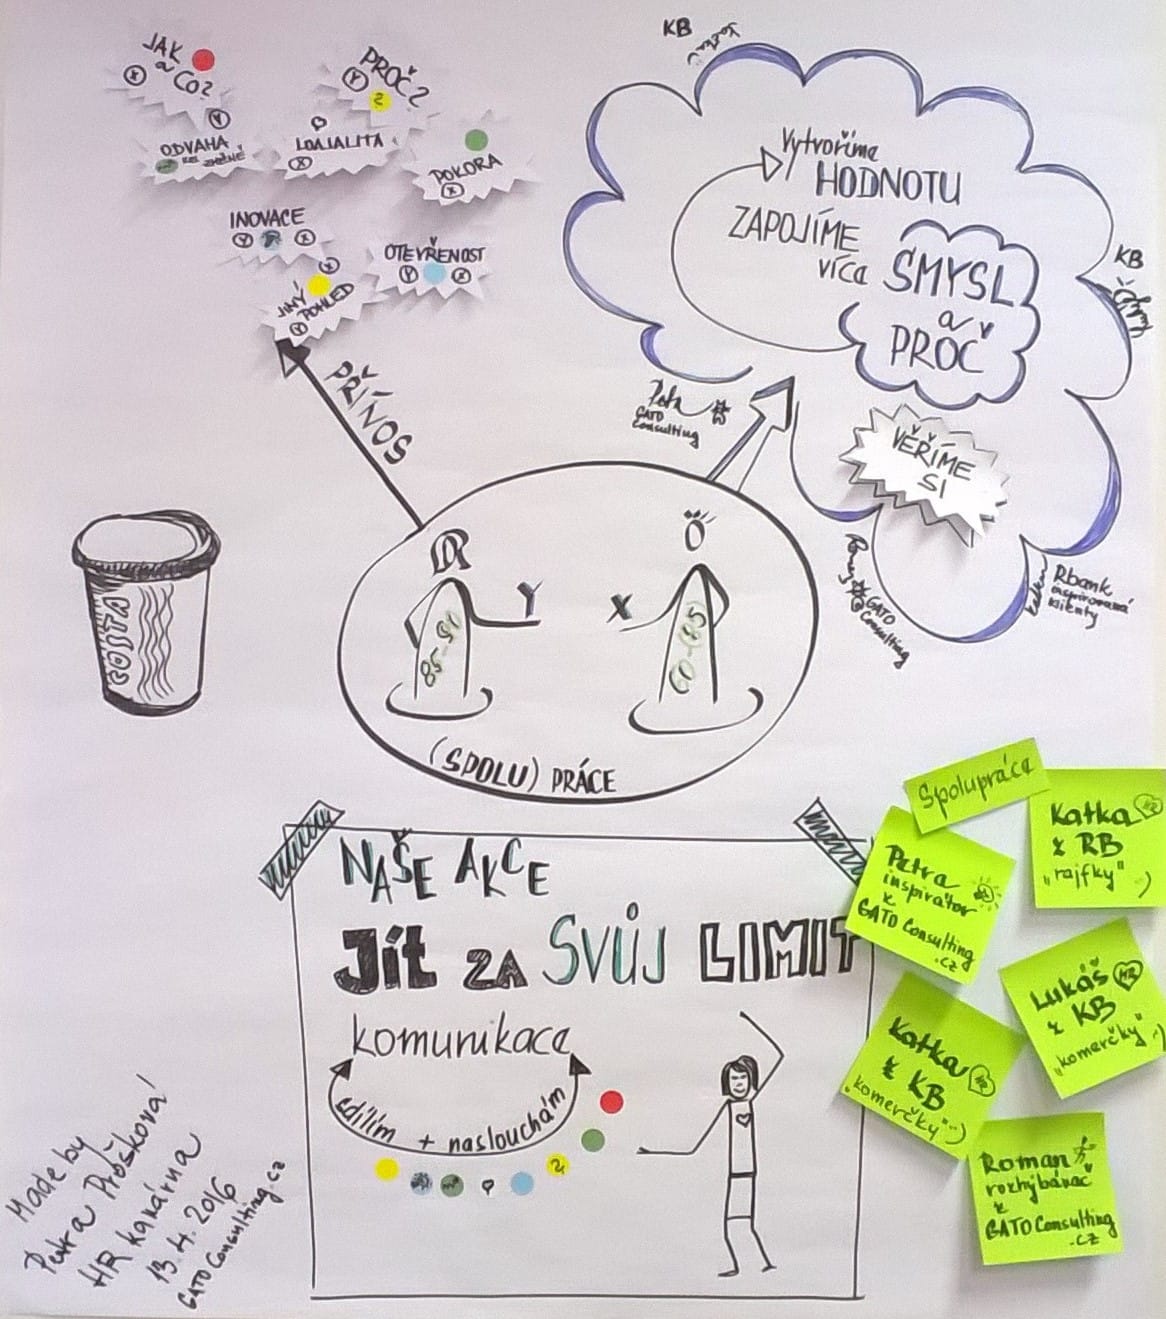 JAK
a CO?
X
Y
PROČ?
Y
2
ODVAHA
KE ZMĚNĚ
LOAJALITA
X
POKORA
X
INOVACE
Y X
OTEVŘENOST
Y X
X
JINÝ
POHLED
Y
PŘÍNOS
KB
Vytvoříme
HODNOTU
ZAPOJÍME
více SMYSL
a
PROČ
KB
VĚŘÍME
SI
GATO
Consulting
GATO
Consulting
Rbank
inspirovaná
klienty
COSTA
Y
X
85-90
60-85
(SPOLU) PRÁCE
NAŠE AKCE
Jít ZA SVŮJ LIMIT
komunikace
sdílím + naslouchám
2
Spolupráce
Katka
z RB
„rajfky" :)
Petra
inspirátor
z
GATO Consulting
.cz
Lukáš HR
z KB
„komerčky" :)
Katka
z KB
„komerčky" :)
Roman
rozhýbávač
z
GATO Consulting
.cz
Made by
Petra Průšková
HR kavárna
13.4.2016
GATO Consulting.cz